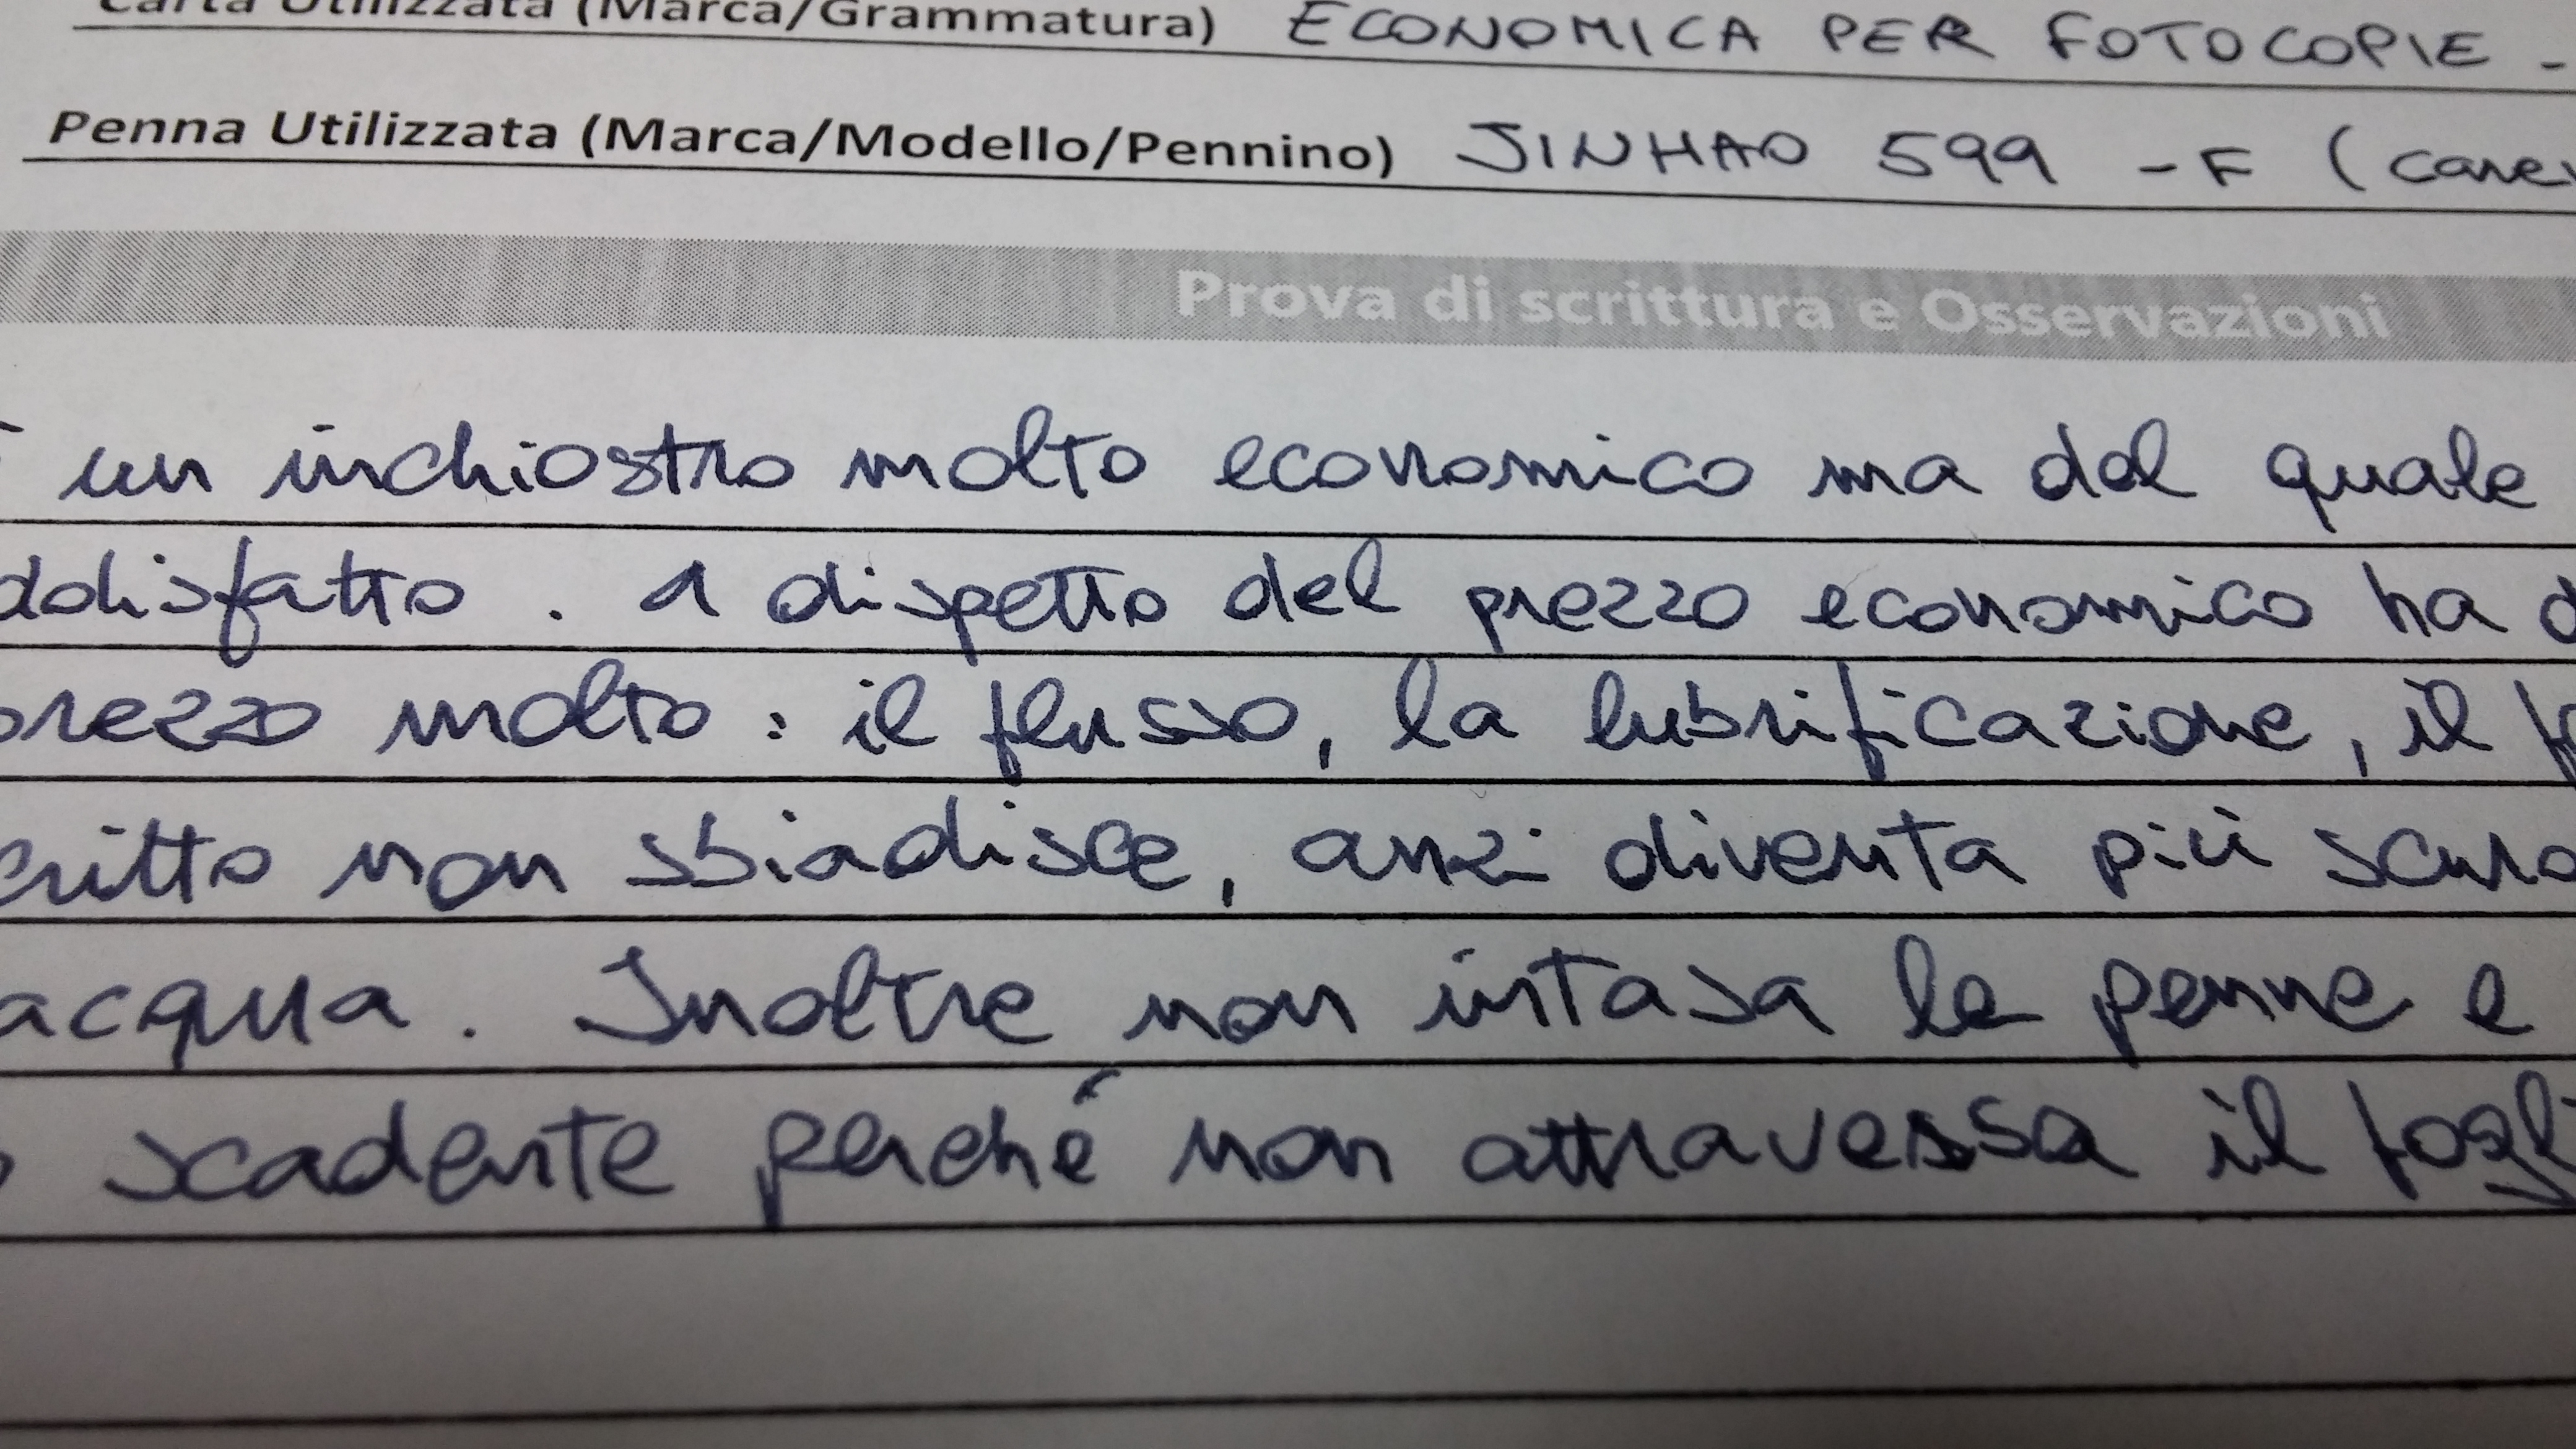 Carta Utilizzata (Marca/Grammatura) ECONOMICA PER FOTOCOPIE -
Penna Utilizzata (Marca/Modello/Pennino) JINHAO 599 - F (
Prova di scrittura e Osservazioni
un inchiostro molto economico ma del quale
ddisfatto. A dispetto del prezzo economico ha
prezzo molto: il flusso, la lubrificazione, il
critto non sbiadisce, anzi diventa più scuro
acqua. Inoltre non intasa le penne e
scadente perché non attraversa il fogl